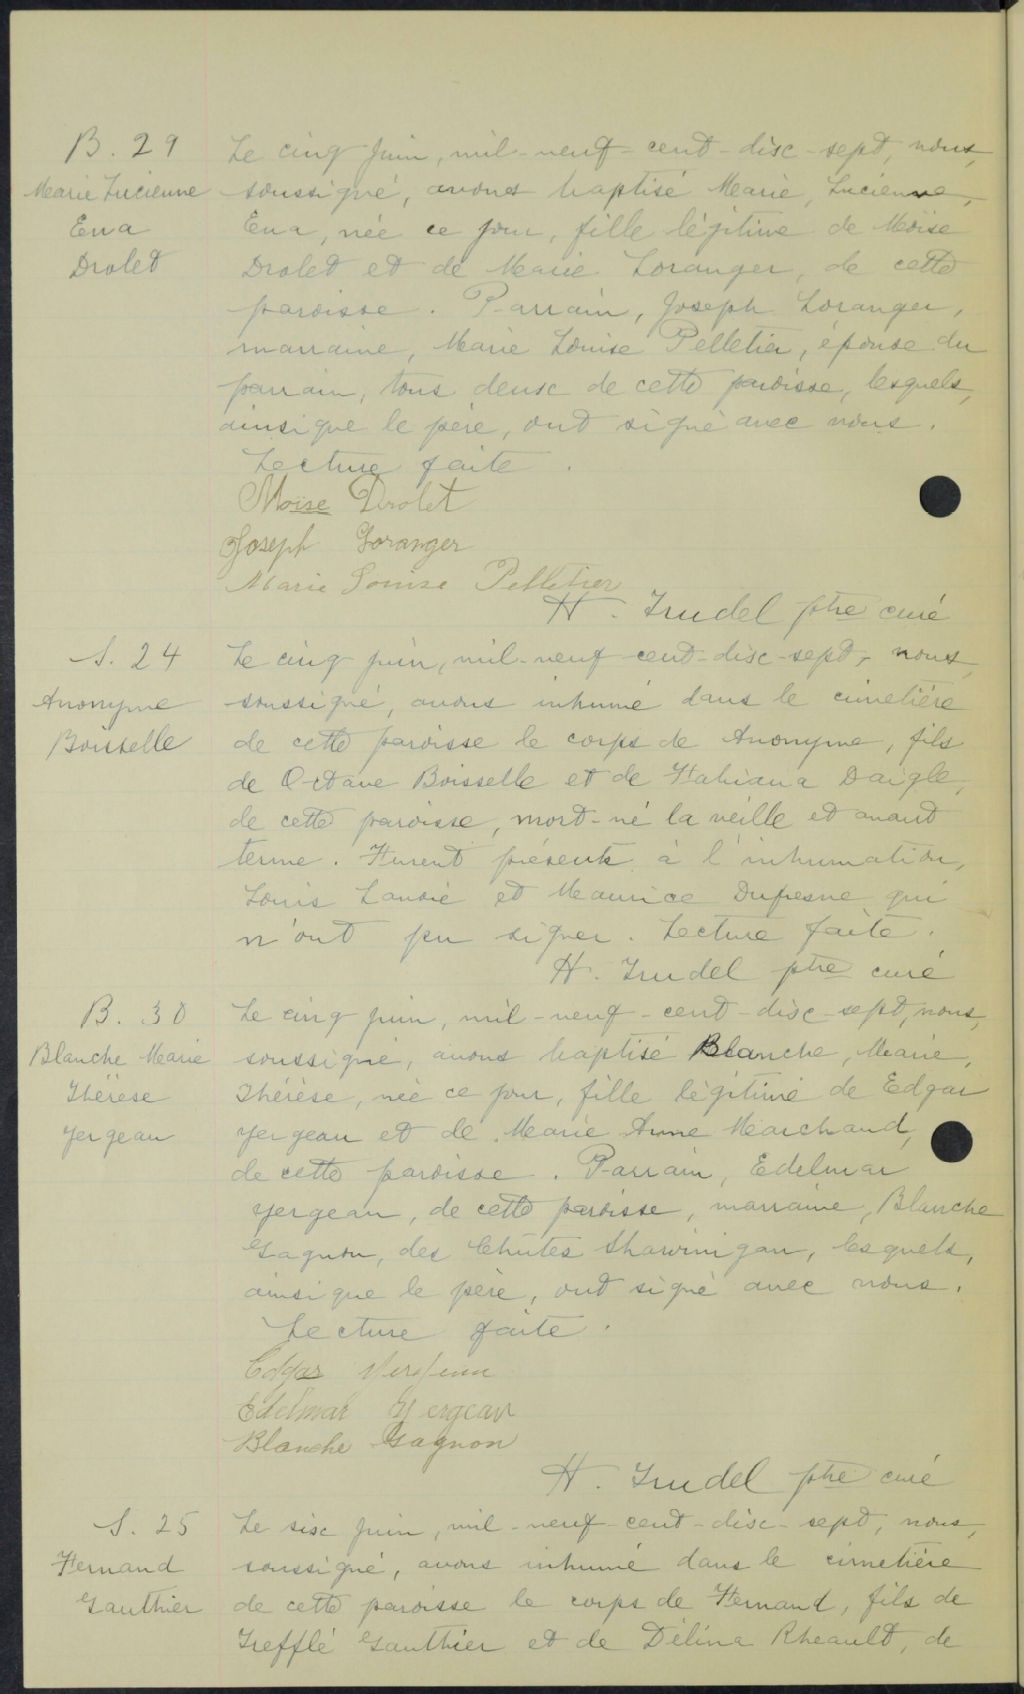 B. 29
Marie Lucienne
Eva
Drolet
Le cinq juin, mil-neuf-cent-dix-sept, nous,
soussigné, avons baptisé Marie, Lucienne,
Eva, née ce jour, fille légitime de Moïse
Drolet et de Marie Loranger, de cette
paroisse. Parrain, Joseph Loranger,
marraine, Marie Louise Pelletier, épouse du
parrain, tous deux de cette paroisse, lesquels,
ainsi que le père, ont signé avec nous.
Lecture faite.
Moïse Drolet
Joseph Loranger
Marie Louise Pelletier
H. Trudel ptre curé
S. 24
Anonyme
Boisselle
Le cinq juin, mil-neuf-cent-dix-sept, nous,
soussigné, avons inhumé dans le cimetière
de cette paroisse le corps de Anonyme, fils
de Octave Boisselle et de Fabiana Daigle,
de cette paroisse, mort-né la veille et avant
terme. Furent présents à l'inhumation,
Louis Lavoie et Maurice Dufresne qui
n'ont pu signer. Lecture faite.
H. Trudel ptre curé
B. 30
Blanche Marie
Thérèse
Yergeau
Le cinq juin, mil-neuf-cent-dix-sept, nous,
soussigné, avons baptisé Blanche, Marie,
Thérèse, née ce jour, fille légitime de Edgar
Yergeau et de Marie Anne Marchand,
de cette paroisse. Parrain, Edelmar
Yergeau, de cette paroisse, marraine, Blanche
Gagnon, des Chûtes Shawinigan, lesquels,
ainsi que le père, ont signé avec nous.
Lecture faite.
Edgar Yergeau
Edelmar Yergeau
Blanche Gagnon
H. Trudel ptre curé
S. 25
Fernand
Gauthier
Le six juin, mil-neuf-cent-dix-sept, nous,
soussigné, avons inhumé dans le cimetière
de cette paroisse le corps de Fernand, fils de
Trefflé Gauthier et de Délina Rheault, de